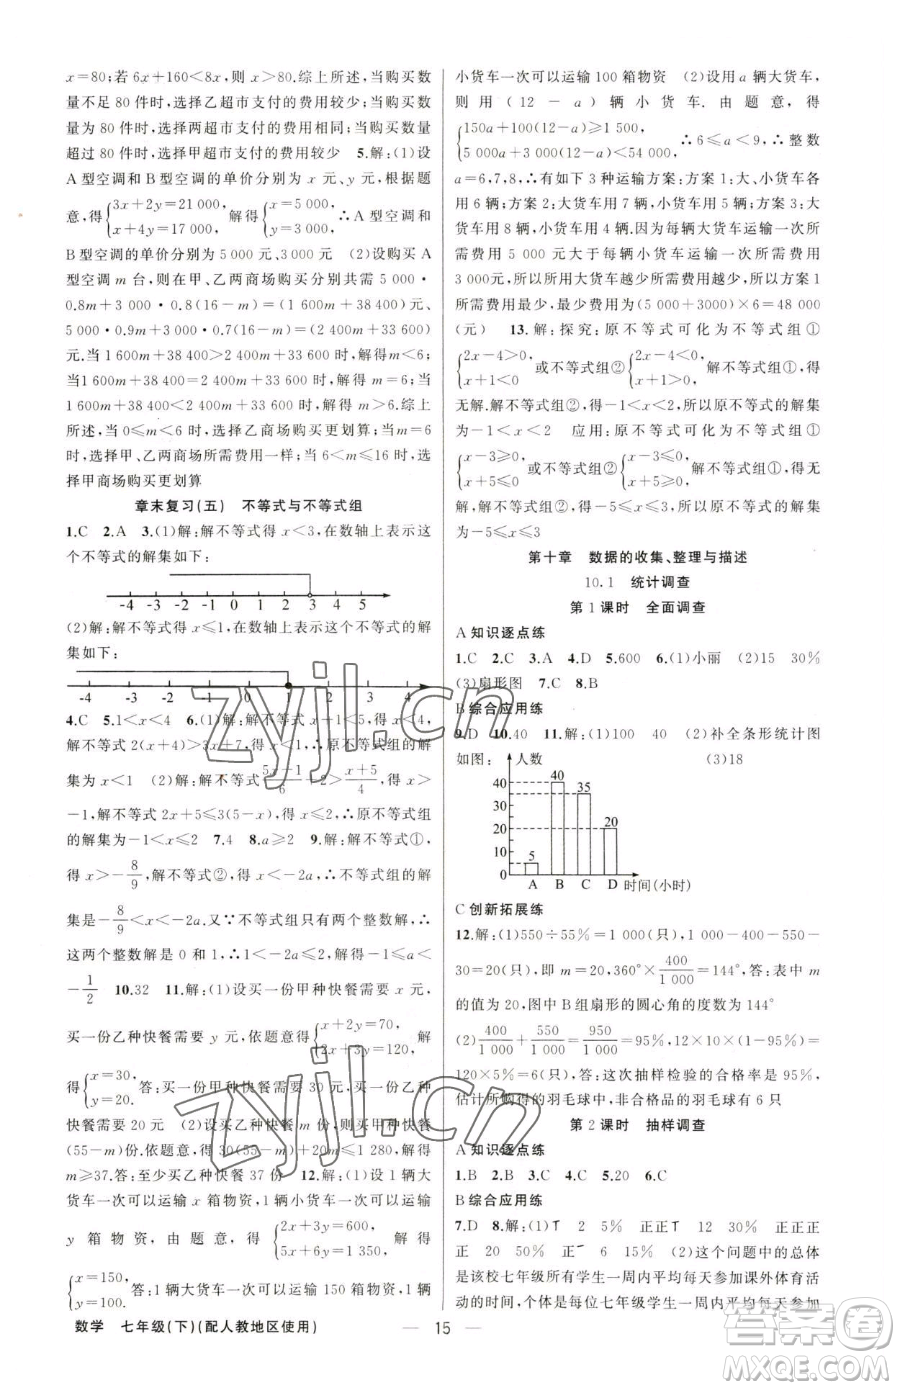 x=80;若 6x+160<8x,则 x>80.综上所述,当购买数
量不足 80 件时,选择乙超市支付的费用较少;当购买数
量为 80 件时,选择两超市支付的费用相同;当购买数量
超过 80 件时,选择甲超市支付的费用较少　5.解:(1)设
A 型空调和 B 型空调的单价分别为 x 元、y 元,根据题
意,得{3x+2y=21 000, x+4y=17 000,解得{x=5 000, y=3 000.∴A 型空调和
B 型空调的单价分别为 5 000 元、3 000 元　(2)设购买 A
型空调 m 台,则在甲、乙两商场购买分别共需 5 000·
0.8m+3 000·0.8(16-m)=(1 600m+38 400)元、
5 000·0.9m+3 000·0.7(16-m)=(2 400m+33 600)
元.当 1 600m+38 400>2 400m+33 600 时,解得 m<6;
当 1 600m+38 400=2 400m+33 600 时,解得 m=6;当
1 600m+38 400<2 400m+33 600 时,解得 m>6.综上所
述,当 0≤m<6 时,选择乙商场购买更划算;当 m=6
时,在甲、乙两商场所需费用一样;当 6<m≤16 时,选
择甲商场购买更划算
章末复习(五)　不等式与不等式组
1.C　2.A　3.(1)解:解不等式得 x<3,在数轴上表示这
个不等式的解集如下:
-4 -3 -2 -1 0 1 2 3 4 5
(2)解:解不等式得 x≤1,在数轴上表示这个不等式的解
集如下:
-4 -3 -2 -1 0 1 2 3 4
4.C　5.1<x<4　6.(1)解:解不等式 x+1<5,得 x<4,
解不等式 2(x+4)>3x+7,得 x<1,∴原不等式组的解
集为 x<1　(2)解:解不等式 (5x-1)/6+2>(x+5)/4,得 x>
-1,解不等式 2x+5≤3(5-x),得 x≤2,∴原不等式组
的解集为-1<x≤2　7.4　8.a≥2　9.解:解不等式①,
得 x>-8/9,解不等式②,得 x<-2a,∴不等式组的解
集是-8/9<x<-2a.又∵不等式组有两个整数解,∴
这两个整数解是 0 和 1,∴1<-2a≤2,解得-1≤a<
-1/2　10.32　11.解:(1)设买一份甲种快餐需要 x 元,
买一份乙种快餐需要 y 元,依题意得{x+2y=70, 2x+3y=120,解
得{x=30, y=20.答:买一份甲种快餐需要 30 元,买一份乙种
快餐需要 20 元　(2)设买乙种快餐 m 份,则买甲种快餐
(55-m)份,依题意,得 30(55-m)+20m≤1 280,解得
m≥37.答:至少买乙种快餐 37 份　12.解:(1)设 1 辆大
货车一次可以运输 x 箱物资,1 辆小货车一次可以运输
y 箱物资,由题意,得{2x+3y=600, 5x+6y=1 350,解得
{x=150, y=100.答:1 辆大货车一次可以运输 150 箱物资,1 辆
小货车一次可以运输 100 箱物资　(2)设用 a 辆大货车,
则用(12-a)辆小货车.由题意,得
{150a+100(12-a)≥1 500, 5 000a+3 000(12-a)<54 000,∴6≤a<9,∴整数
a=6,7,8,∴有如下 3 种运输方案:方案 1:大、小货车分别
各用 6 辆;方案 2:大货车用 7 辆,小货车用 5 辆;方案 3:
大货车用 8 辆,小货车用 4 辆.因为每辆大货车运输一次
所需费用 5 000 元大于每辆小货车运输一次所需费用
3 000元,所以所用大货车越少所需费用越少,所以方案 1
所需费用最少,最少费用为(5 000+3000)×6=48 000
(元)　13.解:探究:原不等式可化为不等式组①
{2x-4>0, x+1<0 或不等式组②{2x-4<0, x+1>0.解不等式组①,得
无解.解不等式组②,得-1<x<2,所以原不等式的解集
为-1<x<2　应用:原不等式可化为不等式组①
{x-3≥0, x+5≤0 或不等式组②{x-3≤0, x+5≥0.解不等式组①,得无
解,解不等式组②,得-5≤x≤3,所以原不等式的解集为
-5≤x≤3
第十章　数据的收集、整理与描述
10.1　统计调查
第 1 课时　全面调查
A 知识逐点练
1.C　2.C　3.A　4.D　5.600　6.(1)小丽　(2)15　30%
(3)扇形图　7.C　8.B
B 综合应用练
9.D　10.40　11.解:(1)100　40　(2)补全条形统计图
如图:　(3)18
人数
40 35 30 25 20 15 10 5 0
5 40 35 20
A B C D 时间(小时)
C 创新拓展练
12.解:(1)550÷55%=1 000(只),1 000-400-550-
30=20(只),即 m=20,360°×400/1 000=144°,答:表中 m
的值为 20,图中 B 组扇形的圆心角的度数为 144°
(2)400/1 000+550/1 000=950/1 000=95%,12×10×(1-95%)=
120×5%=6(只),答:这次抽样检验的合格率是 95%,
估计所检验的羽毛球中,非合格品的羽毛球有 6 只
第 2 课时　抽样调查
A 知识逐点练
1.B　2.B　3.C　4.C　5.20　6.C
B 综合应用练
7.D　8.解:(1)丅　2　5%　正正丅　12　30%　正正正
正　20　50%　正一　6　15%　(2)这个问题中的总体
是该校七年级所有学生一周内平均每天参加课外体育活
动的时间,个体是每位七年级学生一周内平均每天参加
数学　七年级(下)(配人教地区使用)　— 15 —
zyjl.cn
zyjl.cn
答案圈
MXQE.COM